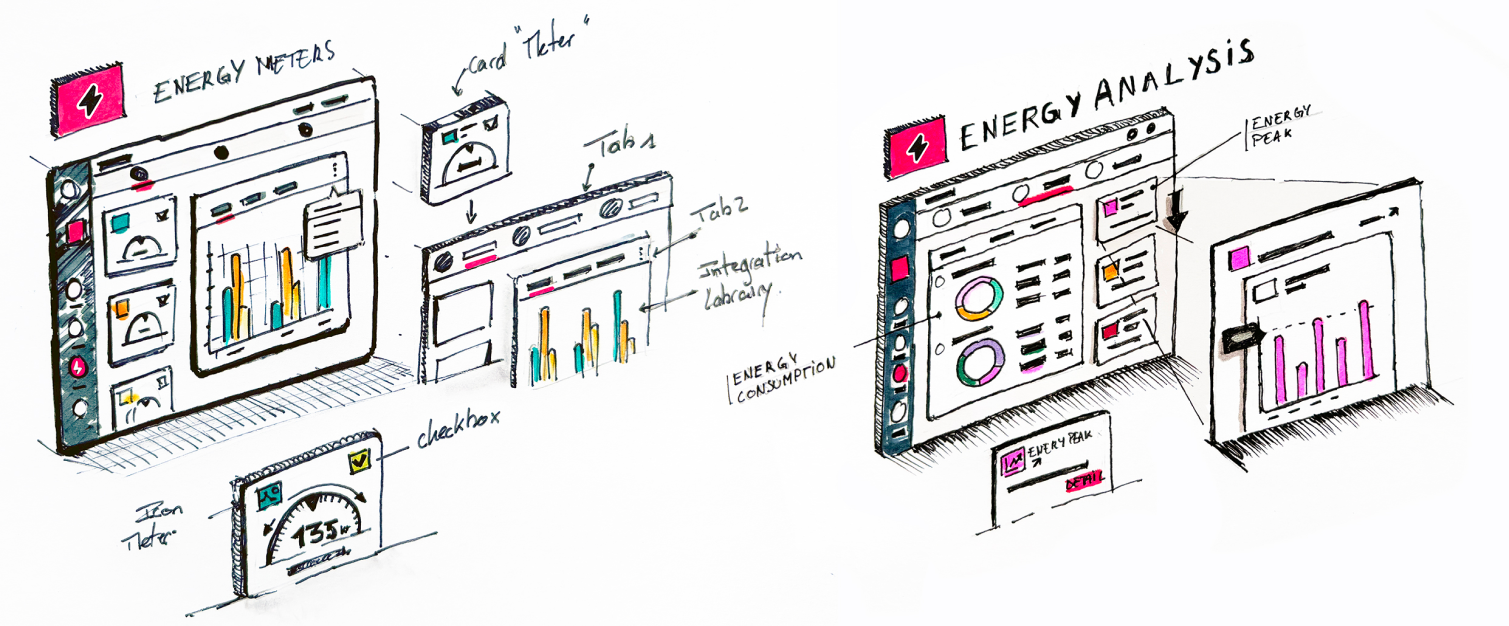 ENERGY METERS
card "Meter"
Tab 1
Tab 2
Integration
Library.
checkbox
Icon
Meter
135 kW
ENERGY ANALYSIS
ENERGY
PEAK
ENERGY
CONSUMPTION
ENERY PEAK
DETAIL